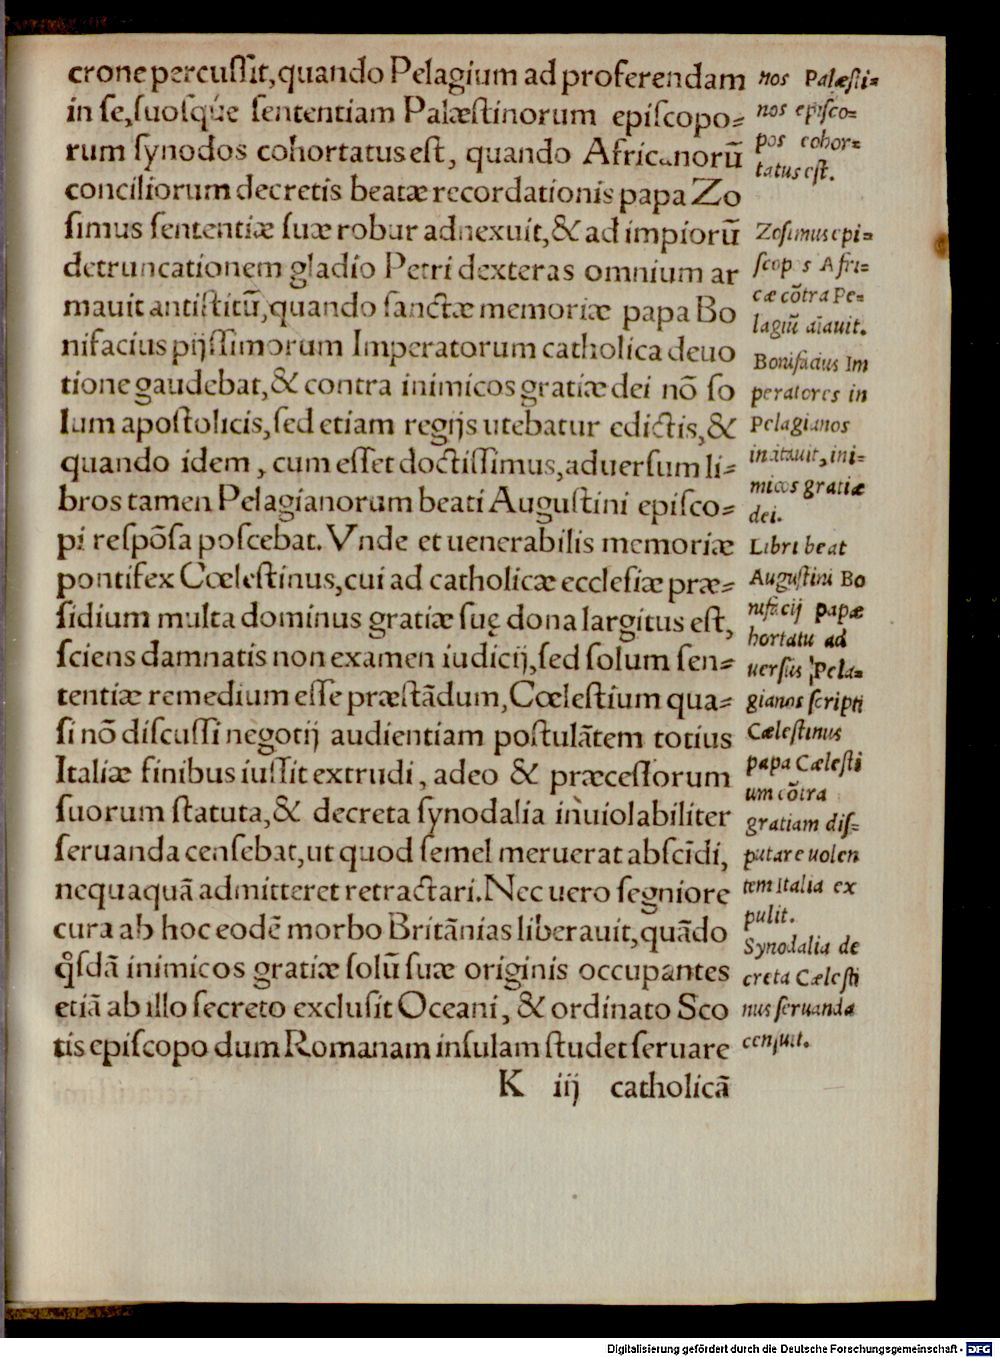 crone percuſſit,quando Pelagium ad proferendam
in ſe,ſuoſq́ue ſententiam Palæſtinorum epiſcopo⸗
rum ſynodos cohortatus eſt, quando Africanorū
conciliorum decretis beatæ recordationis papa Zo
ſimus ſententiæ ſuæ robur adnexuit,& ad impiorū
detruncationem gladio Petri dexteras omnium ar
mauit antiſtitū,quando ſanctæ memoriæ papa Bo
nifacius pijſſimorum Imperatorum catholica deuo
tione gaudebat,& contra inimicos gratiæ dei nō ſo
lum apoſtolicis,ſed etiam regijs utebatur edictis,&
quando idem, cum eſſet doctiſſimus,aduerſum li⸗
bros tamen Pelagianorum beati Auguſtini epiſco⸗
pi reſpōſa poſcebat. Vnde et uenerabilis memoriæ
pontifex Cœleſtinus,cui ad catholicæ eccleſiæ præ⸗
ſidium multa dominus gratiæ ſuę dona largitus eſt,
ſciens damnatis non examen iudicij,ſed ſolum ſen⸗
tentiæ remedium eſſe præſtādum,Cœleſtium qua⸗
ſi nō diſcuſſi negotij audientiam poſtulātem totius
Italiæ finibus iuſſit extrudi, adeo & præceſſorum
ſuorum ſtatuta,& decreta ſynodalia inuiolabiliter
ſeruanda cenſebat,ut quod ſemel meruerat abſcīdi,
nequaquā admitteret retractari. Nec uero ſegniore
cura ab hoc eodē morbo Britānias liberauit,quādo
q̊ſdā inimicos gratiæ ſolū ſuæ originis occupantes
etiā ab illo ſecreto excluſit Oceani, & ordinato Sco
tis epiſcopo dum Romanam inſulam ſtudet ſeruare
K iij catholicā
nos Palæſti⸗
nos epiſco⸗
pos cohor⸗
tatus eſt.
Zoſimus epi⸗
ſcopos Afri⸗
cæ cōtra Pe⸗
lagiū aīauit.
Bonifacius Im
peratores in
Pelagianos
incitauit, ini⸗
micos gratiæ
dei.
Libri beat
Auguſtini Bo
nifacij papæ
hortatu ad
uerſus Pela⸗
gianos ſcripti
Cæleſtinus
papa Cæleſti
um cōtra
gratiam diſ⸗
putare uolen
tem Italia ex
pulit.
Synodalia de
creta Cæleſti
nus ſeruanda
cenſuit.
Digitalisierung gefördert durch die Deutsche Forschungsgemeinschaft - DFG